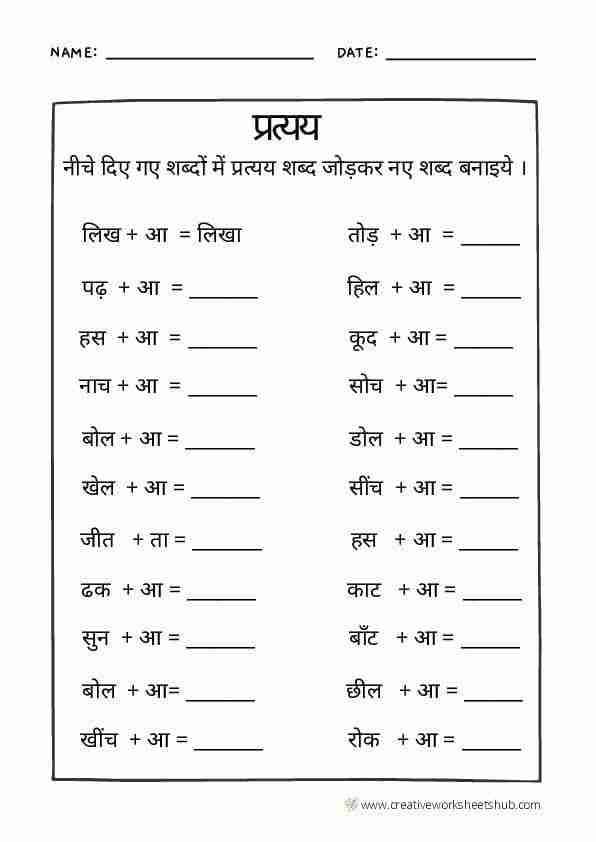 NAME: ____________ DATE: ____________
प्रत्यय
नीचे दिए गए शब्दों में प्रत्यय शब्द जोड़कर नए शब्द बनाइये ।
लिख + आ = लिखा तोड़ + आ = _____
पढ़ + आ = ______ हिल + आ = _____
हस + आ = ______ कूद + आ = _____
नाच + आ = ______ सोच + आ= _____
बोल + आ = ______ डोल + आ = _____
खेल + आ = ______ सींच + आ = _____
जीत + ता = ______ हस + आ = _____
ढक + आ = ______ काट + आ = _____
सुन + आ = ______ बाँट + आ = _____
बोल + आ= ______ छील + आ = _____
खींच + आ = ______ रोक + आ = _____
www.creativeworksheetshub.com